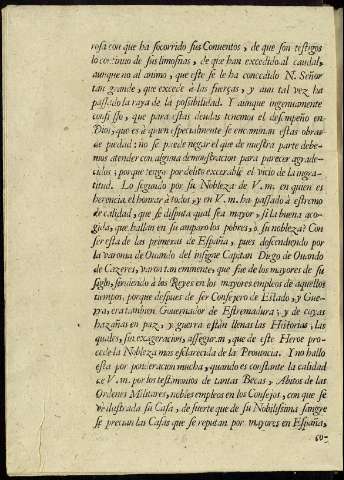 rosa con que ha socorrido sus Conventos, de que son testigos
lo continuo de sus limosnas, de que han excedido al caudal,
aunque no al animo, que este se le ha concedido N. Señor
tan grande, que excede à las fuerças, y aun tal vez ha
passado la raya de la possibilidad. Y aunque ingenuamente
confiesso, que para estas deudas tenemos el desempeño en
Dios, que es à quien especialmente se encaminan estas obras
de piedad: no se puede negar el que de nuestra parte debe-
mos atender con alguna demonstracion para parecer agrade-
cidos; porque tengo por delito execrable el vicio de la ingra-
titud. Lo segundo por su Nobleza de V. m. en quien es
herencia el honrar à todos, y en V. m. ha passado à estremo
de calidad, que se disputa qual sea mayor, si la buena aco-
gida, que hallan en su amparo los pobres, ò su nobleza? Con
ser esta de las primeras de España, pues descendiendo por
la varonia de Ovando del insigne Capitan Diego de Ovando
de Cazeres, varon tan eminente, que fue de los mayores de su
siglo, sirviendo à los Reyes en los mayores empleos de aquellos
tiempos, porque despues de ser Consejero de Estado, y Gue-
rra, era tambien Governador de Estremadura; y de cuyas
hazañas en paz, y guerra están llenas las Historias, las
quales, sin exageracion, asseguran, que de este Heroe pro-
cede la Nobleza mas esclarecida de la Provincia. Y no hallo
esta por ponderacion mucha, quando es constante la calidad
de V. m. por los testimonios de tantas Becas, Abitos de las
Ordenes Militares, nobles empleos en los Consejos, con que se
vè ilustrada su Casa, de suerte que de su Nobilissima sangre
se precian las Casas que se reputan por mayores en España,
co-